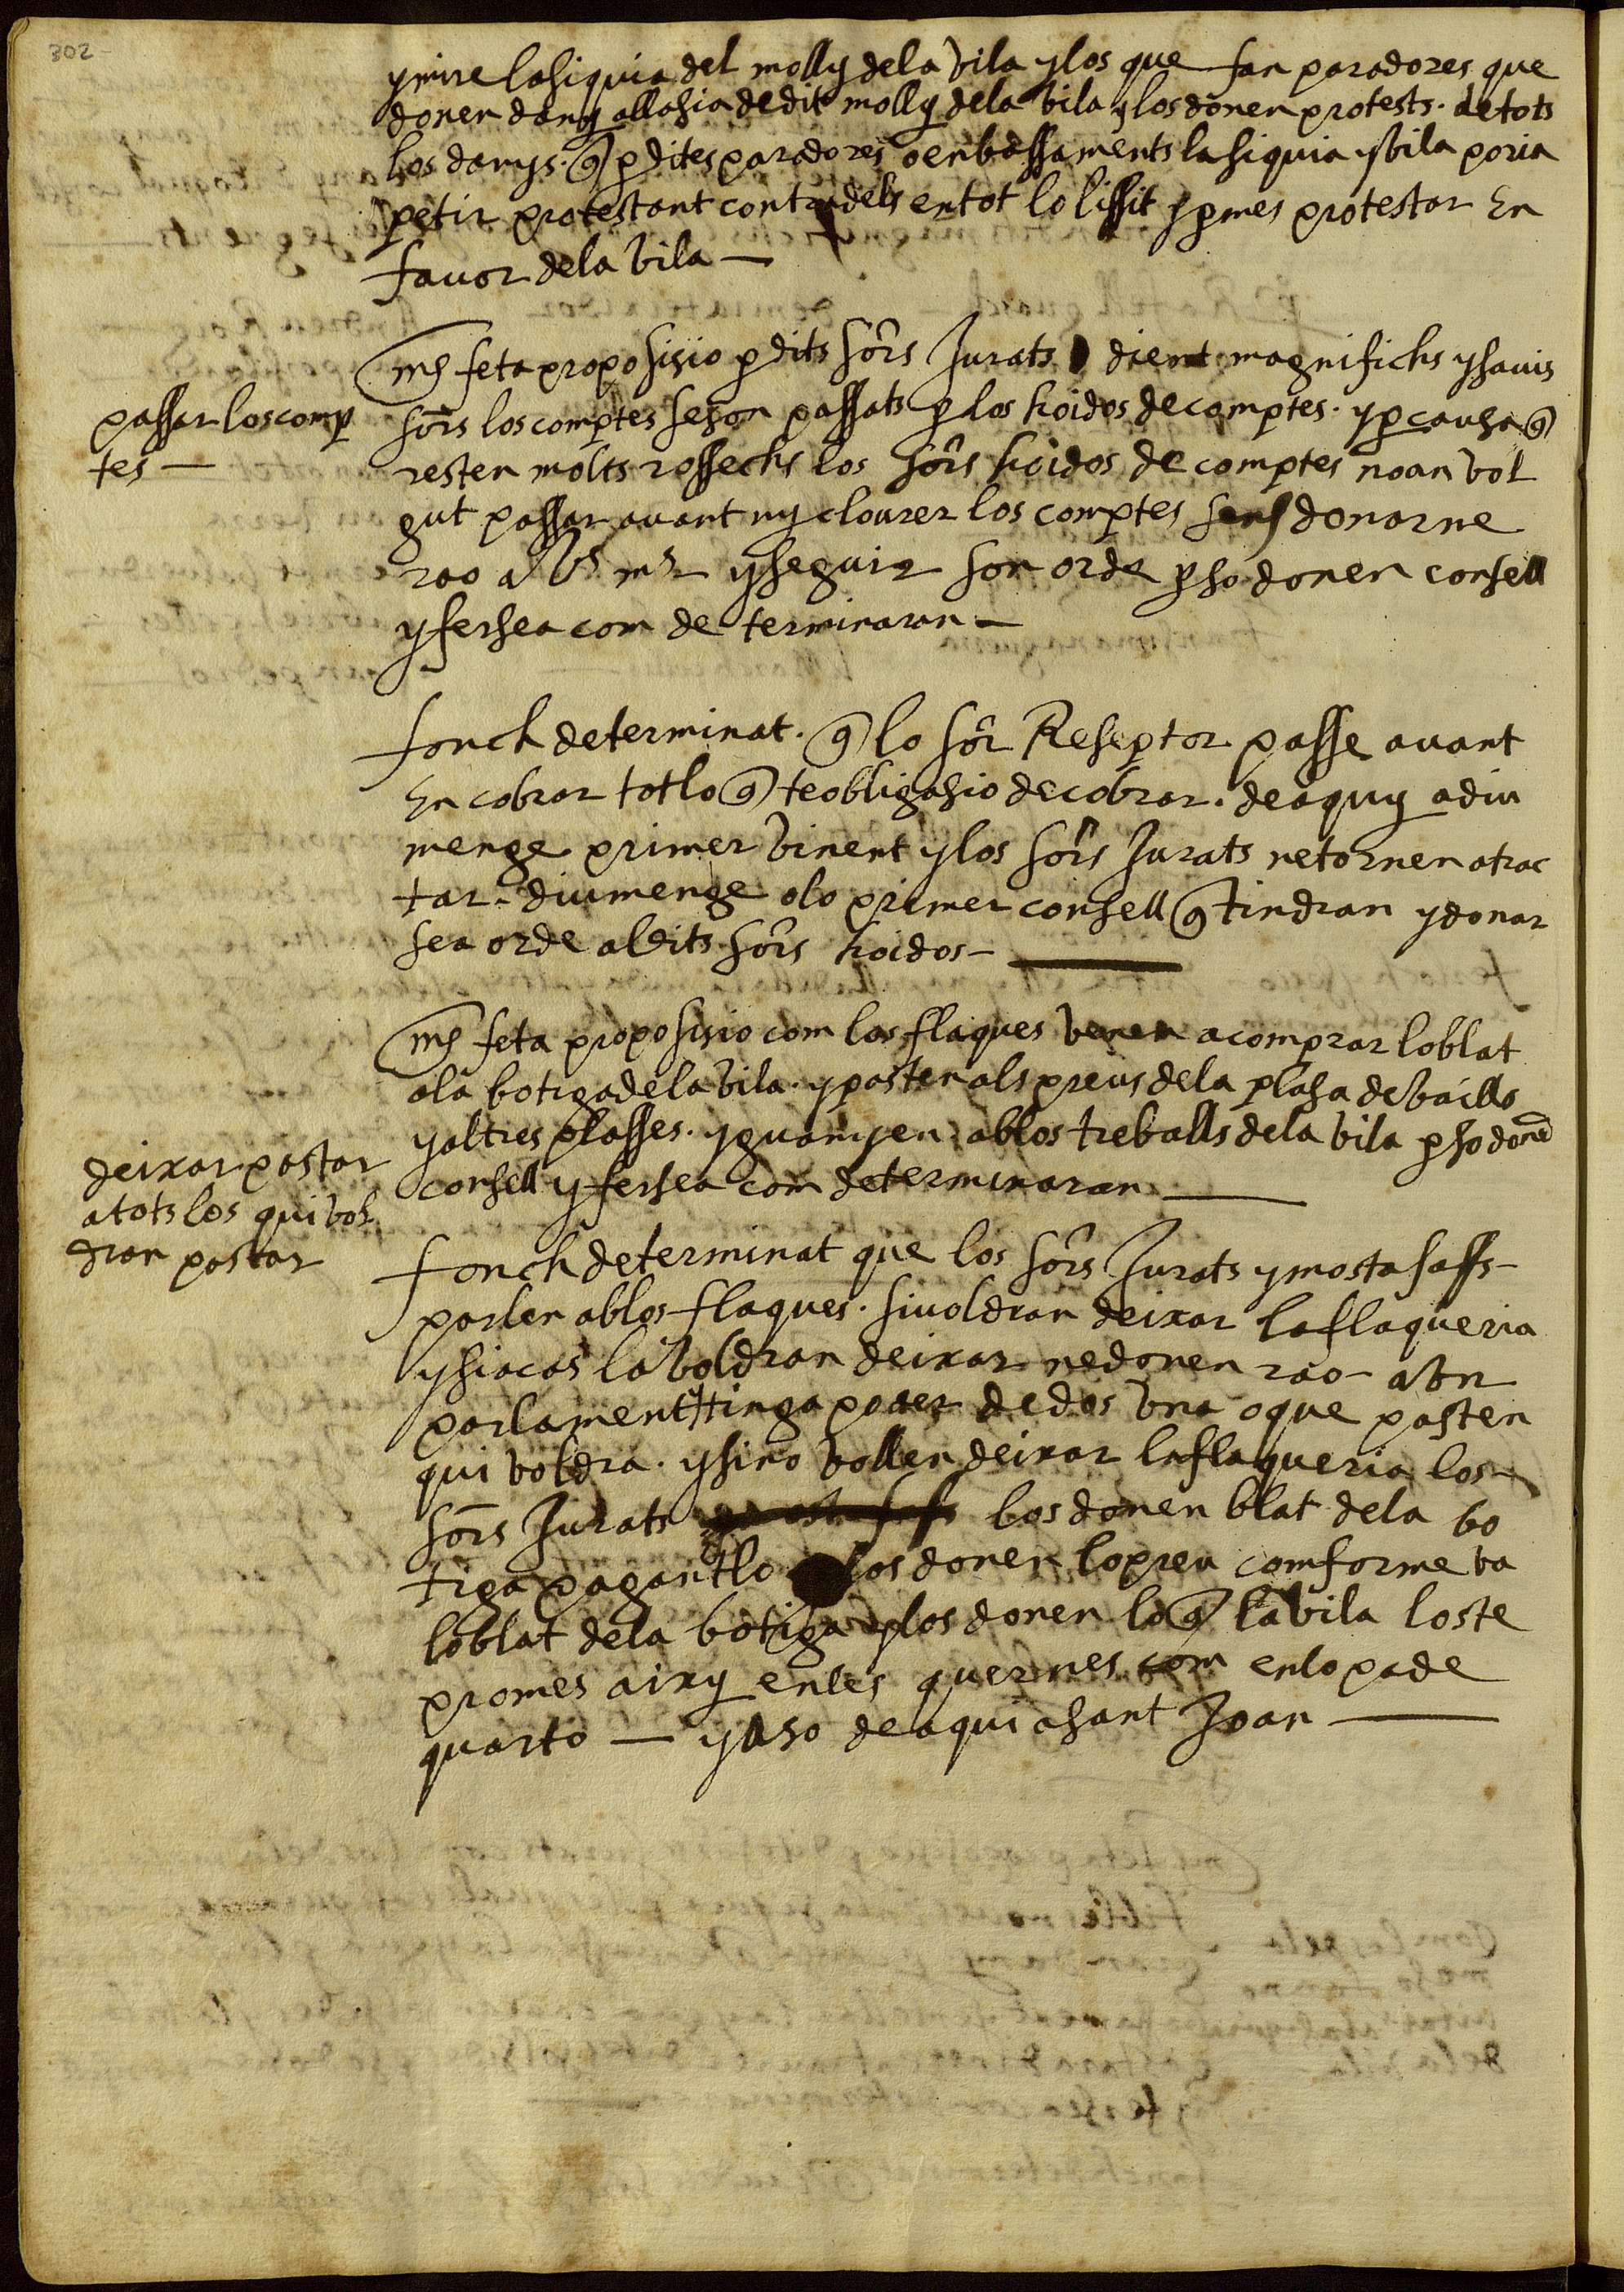 302
y mire la siquia del molly de la vila y los que fan paradores que
donen dany alla sia de dit molly de la vila y los donen protests. de tots
los danys. q̃ p dites paradores o enbassaments la siquia y vila poria
petir protestant contra dels en tot lo lissit y p mes protestar En
favor de la vila —
passar los comp
tes —
mes feta proposisio p dits sôrs Jurats dient magnifichs y savis
sôrs los comptes se son passats p los hoidos de comptes. y p causa q̃
resten molts rossechs los sôrs hoidos de comptes no an vol
gut passar avant ny clourer los comptes sens donarne
rao a Vs ms y seguir son orde p so donen consell
y fersea com de terminaran —
fonch determinat. q̃ lo sôr Reseptor passe avant
En cobrar tot lo q̃ te obligasio de cobrar. de aquy a diu
menge primer vinent y los sôrs Jurats ne tornen a trac
tar. diumenge o lo primer consell q̃ tindran y donar
sea orde al dits sôrs hoidos —
mes feta proposisio com los flaques venen a comprar lo blat
a la botiga de la vila. y pasten als preus de la plasa de vaills
y altres plasses. y guanyen ab los treballs de la vila p so donẽ
consell y fersea com determinaran —
deixar pastar
a tots los qui vol
dran pastar
fonch determinat que los sôrs Jurats y mostasaffs —
parlen ab los flaques. si voldran deixar la flaqueria
y si acas la voldran deixar ne donen rao — a Vn
parlament y tinga poder de dos Vna o que pasten
qui voldra. y si no vollen deixar la flaqueria los —
sôrs Jurats los donen blat de la bo
tiga pagantlo los donen lo preu comforme va
lo blat de la botiga y los donen lo q̃ la vila los te
promes aixy en les quernes com en lo pa de
quarto — y aso de aqui a sant Joan —